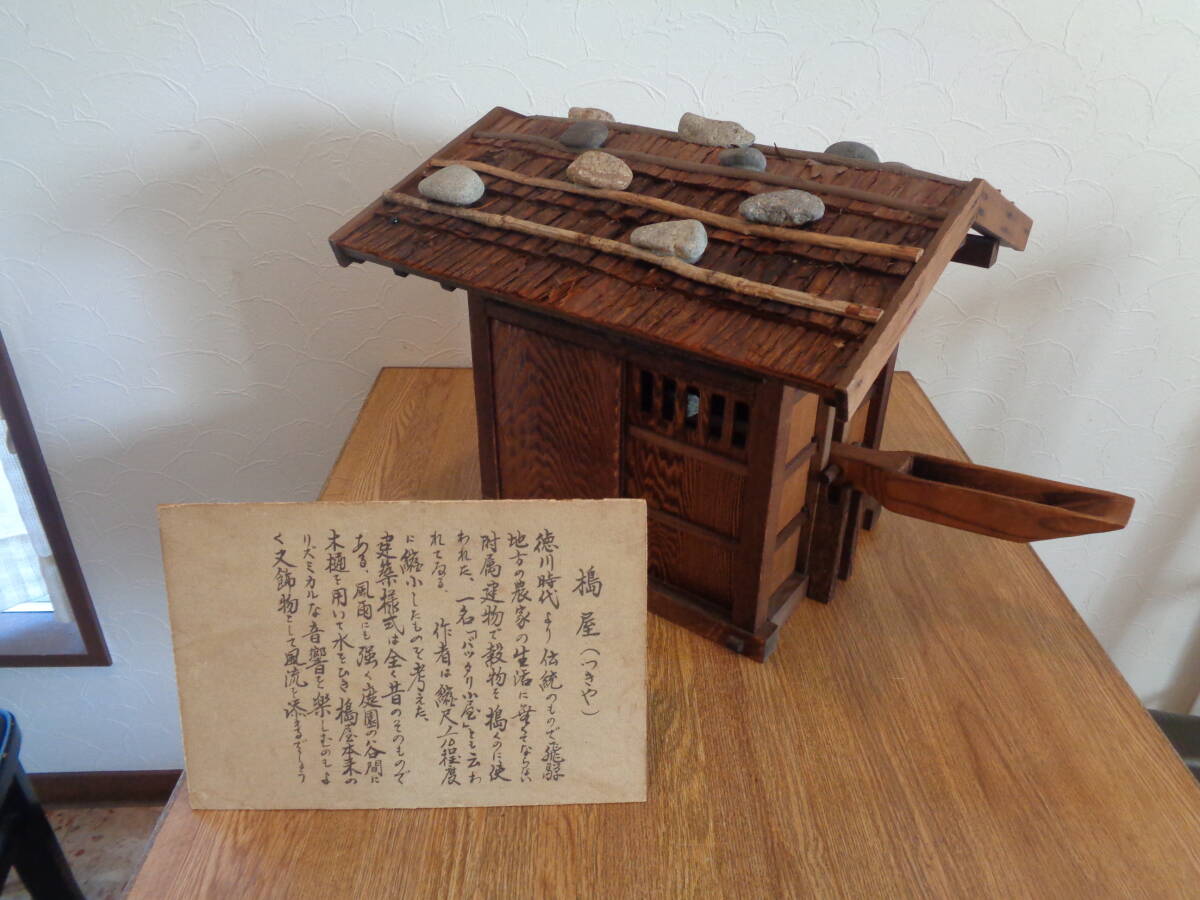 搗屋（つきや）
徳川時代より伝統のもので飛騨
地方の農家の生活に無くてならない
附属建物で穀物を搗くのに使
われた、一名「バッタリ小屋」とも云わ
れている。 作者は縮尺1/10程度
に縮小したものを考えた、
建築様式は全く昔のそのもので
ある、風雨にも強く庭園の谷間に
木樋を用いて水をひき搗屋本来の
リズミカルな音響を楽しむのもよ
く又飾物として風流を添えるでしょう